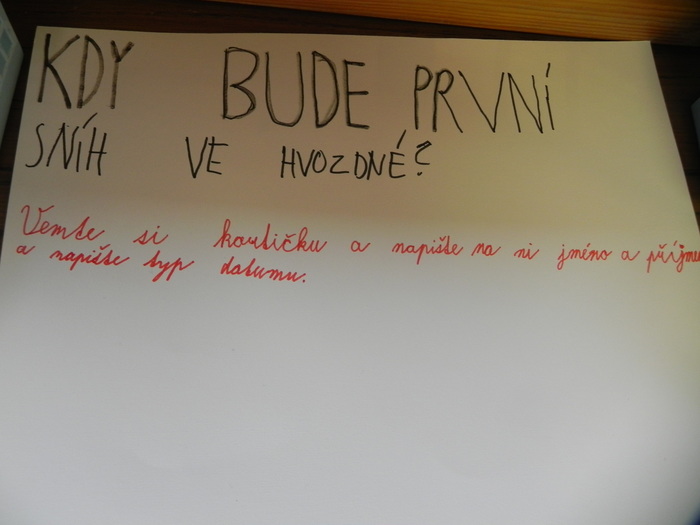 KDY BUDE PRVNÍ
SNÍH VE HVOZDNÉ?
Vemte si kartičku a napište na ni jméno a příjme
a napište typ datumu.